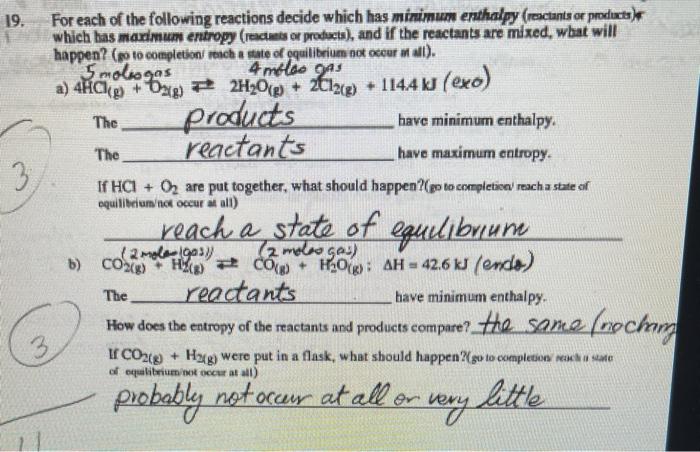 19. For each of the following reactions decide which has minimum enthalpy (reactants or products)
which has maximum entropy (reactants or products), and if the reactants are mixed, what will
happen? (go to completion/ reach a state of equilibrium not occur at all).
5 moles gas 4 moles gas
a) 4HCl(g) + O2(g) ⇄ 2H2O(g) + 2Cl2(g) + 114.4 kJ (exo)
The products have minimum enthalpy.
The reactants have maximum entropy.
3
If HCl + O2 are put together, what should happen?(go to completion/ reach a state of
equilibrium/not occur at all)
reach a state of equilibrium
(2 moles gas) (2 moles gas)
b) CO2(g) + H2(g) ⇄ CO(g) + H2O(g); ΔH = 42.6 kJ (endo)
The reactants have minimum enthalpy.
How does the entropy of the reactants and products compare? the same (no
3
If CO2(g) + H2(g) were put in a flask, what should happen?(go to completion/ reach a state
of equilibrium/not occur at all)
probably not occur at all or very little